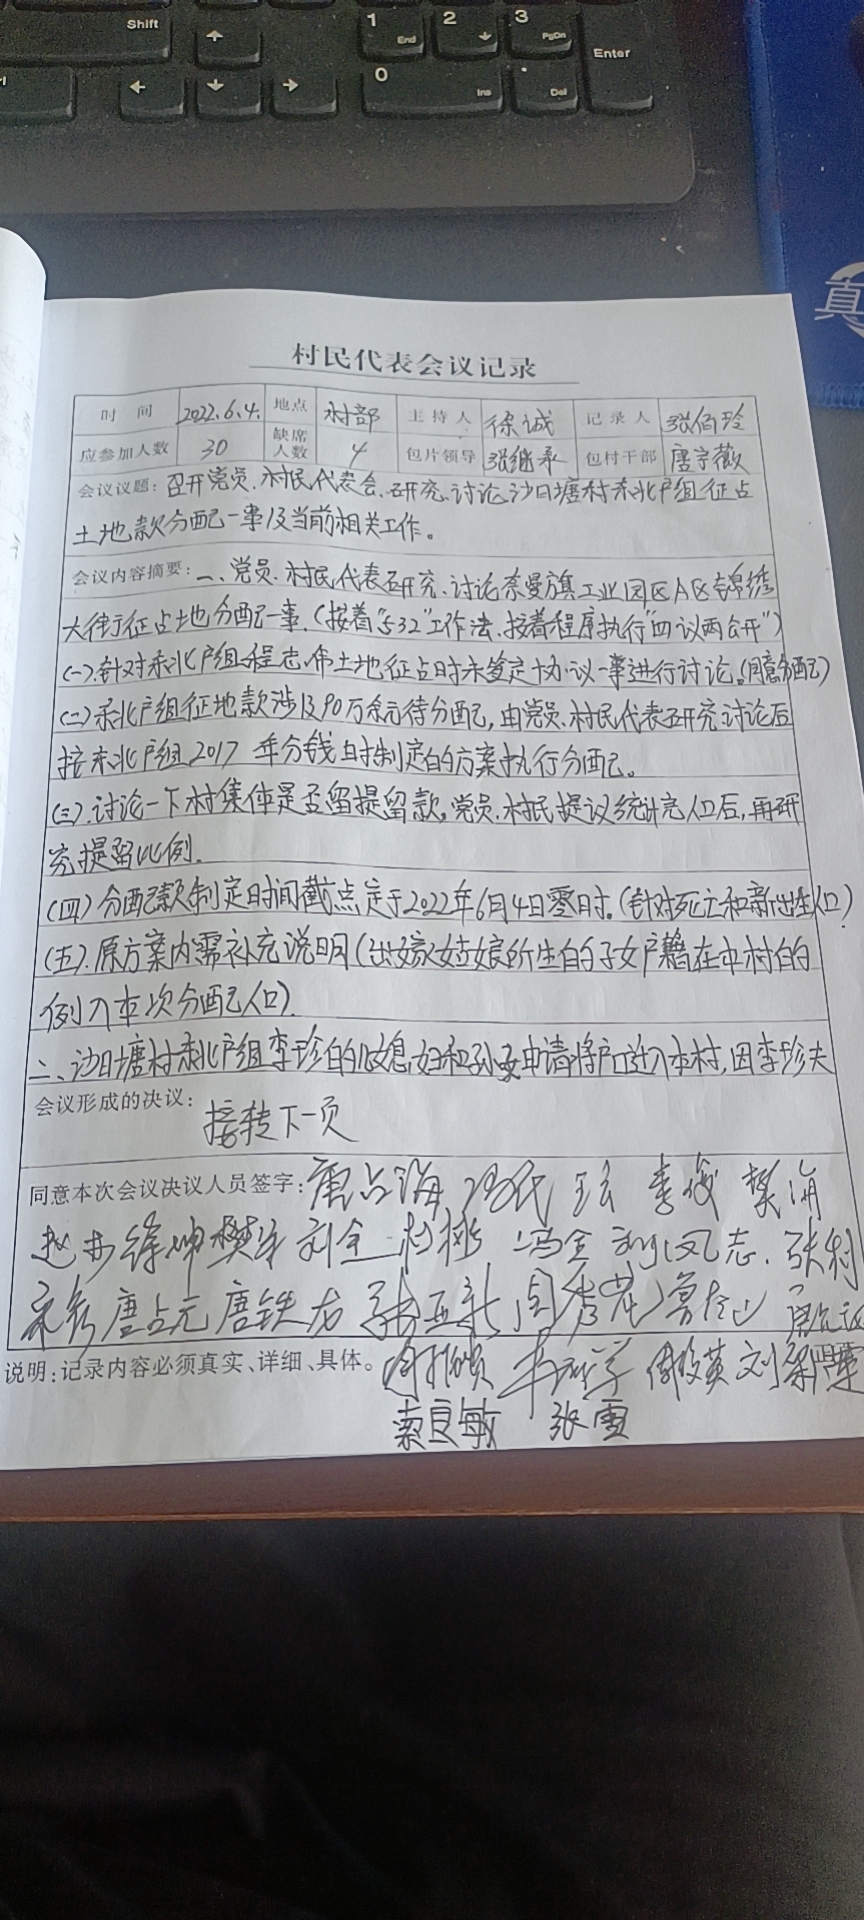 Shift
1 End
2
3 PgDn
Enter
0 Ins
Del
真
村民代表会议记录
时间 2022.6.4. 地点 村部 主持人 徐诚 记录人 张佰玲
应参加人数 30 缺席人数 4 包片领导 张继承 包村干部 唐宇薇
会议议题：召开党员、村民代表会、研究、讨论沙日塘村东北户组征占
土地款分配一事及当前相关工作。
会议内容摘要：一、党员、村民代表研究、讨论奈曼旗工业园区A区锦绣
大街征占土地分配一事、(按着"532"工作法、按着程序执行"四议两公开")
(一)、针对东北户组程志伟土地征占时未签定协议一事进行讨论。(同意分配)
(二)东北户组征地款涉及90万余元待分配，由党员、村民代表研究讨论后
按东北户组2017年分钱时制定的方案执行分配。
(三)、讨论一下村集体是否留提留款，党员、村民提议统计完人口后，再研
究提留比例。
(四)分配款制定时间截点定于2022年6月4日零时。(针对死亡和新出生人口)
(五)、原方案内需补充说明(出嫁姑娘所生的子女户籍在本村的
例入本次分配人口)。
二、沙日塘村东北户组李珍的儿媳妇和孙女申请将户口迁入本村，因李珍夫
会议形成的决议：
接转下一页
同意本次会议决议人员签字：唐占海 李俊 樊海
徐坤 刘金 冯金 刘凤志、张利
唐占元 唐铁龙 张亚新 周秀花
说明：记录内容必须真实、详细、具体。
索良敏 张雪